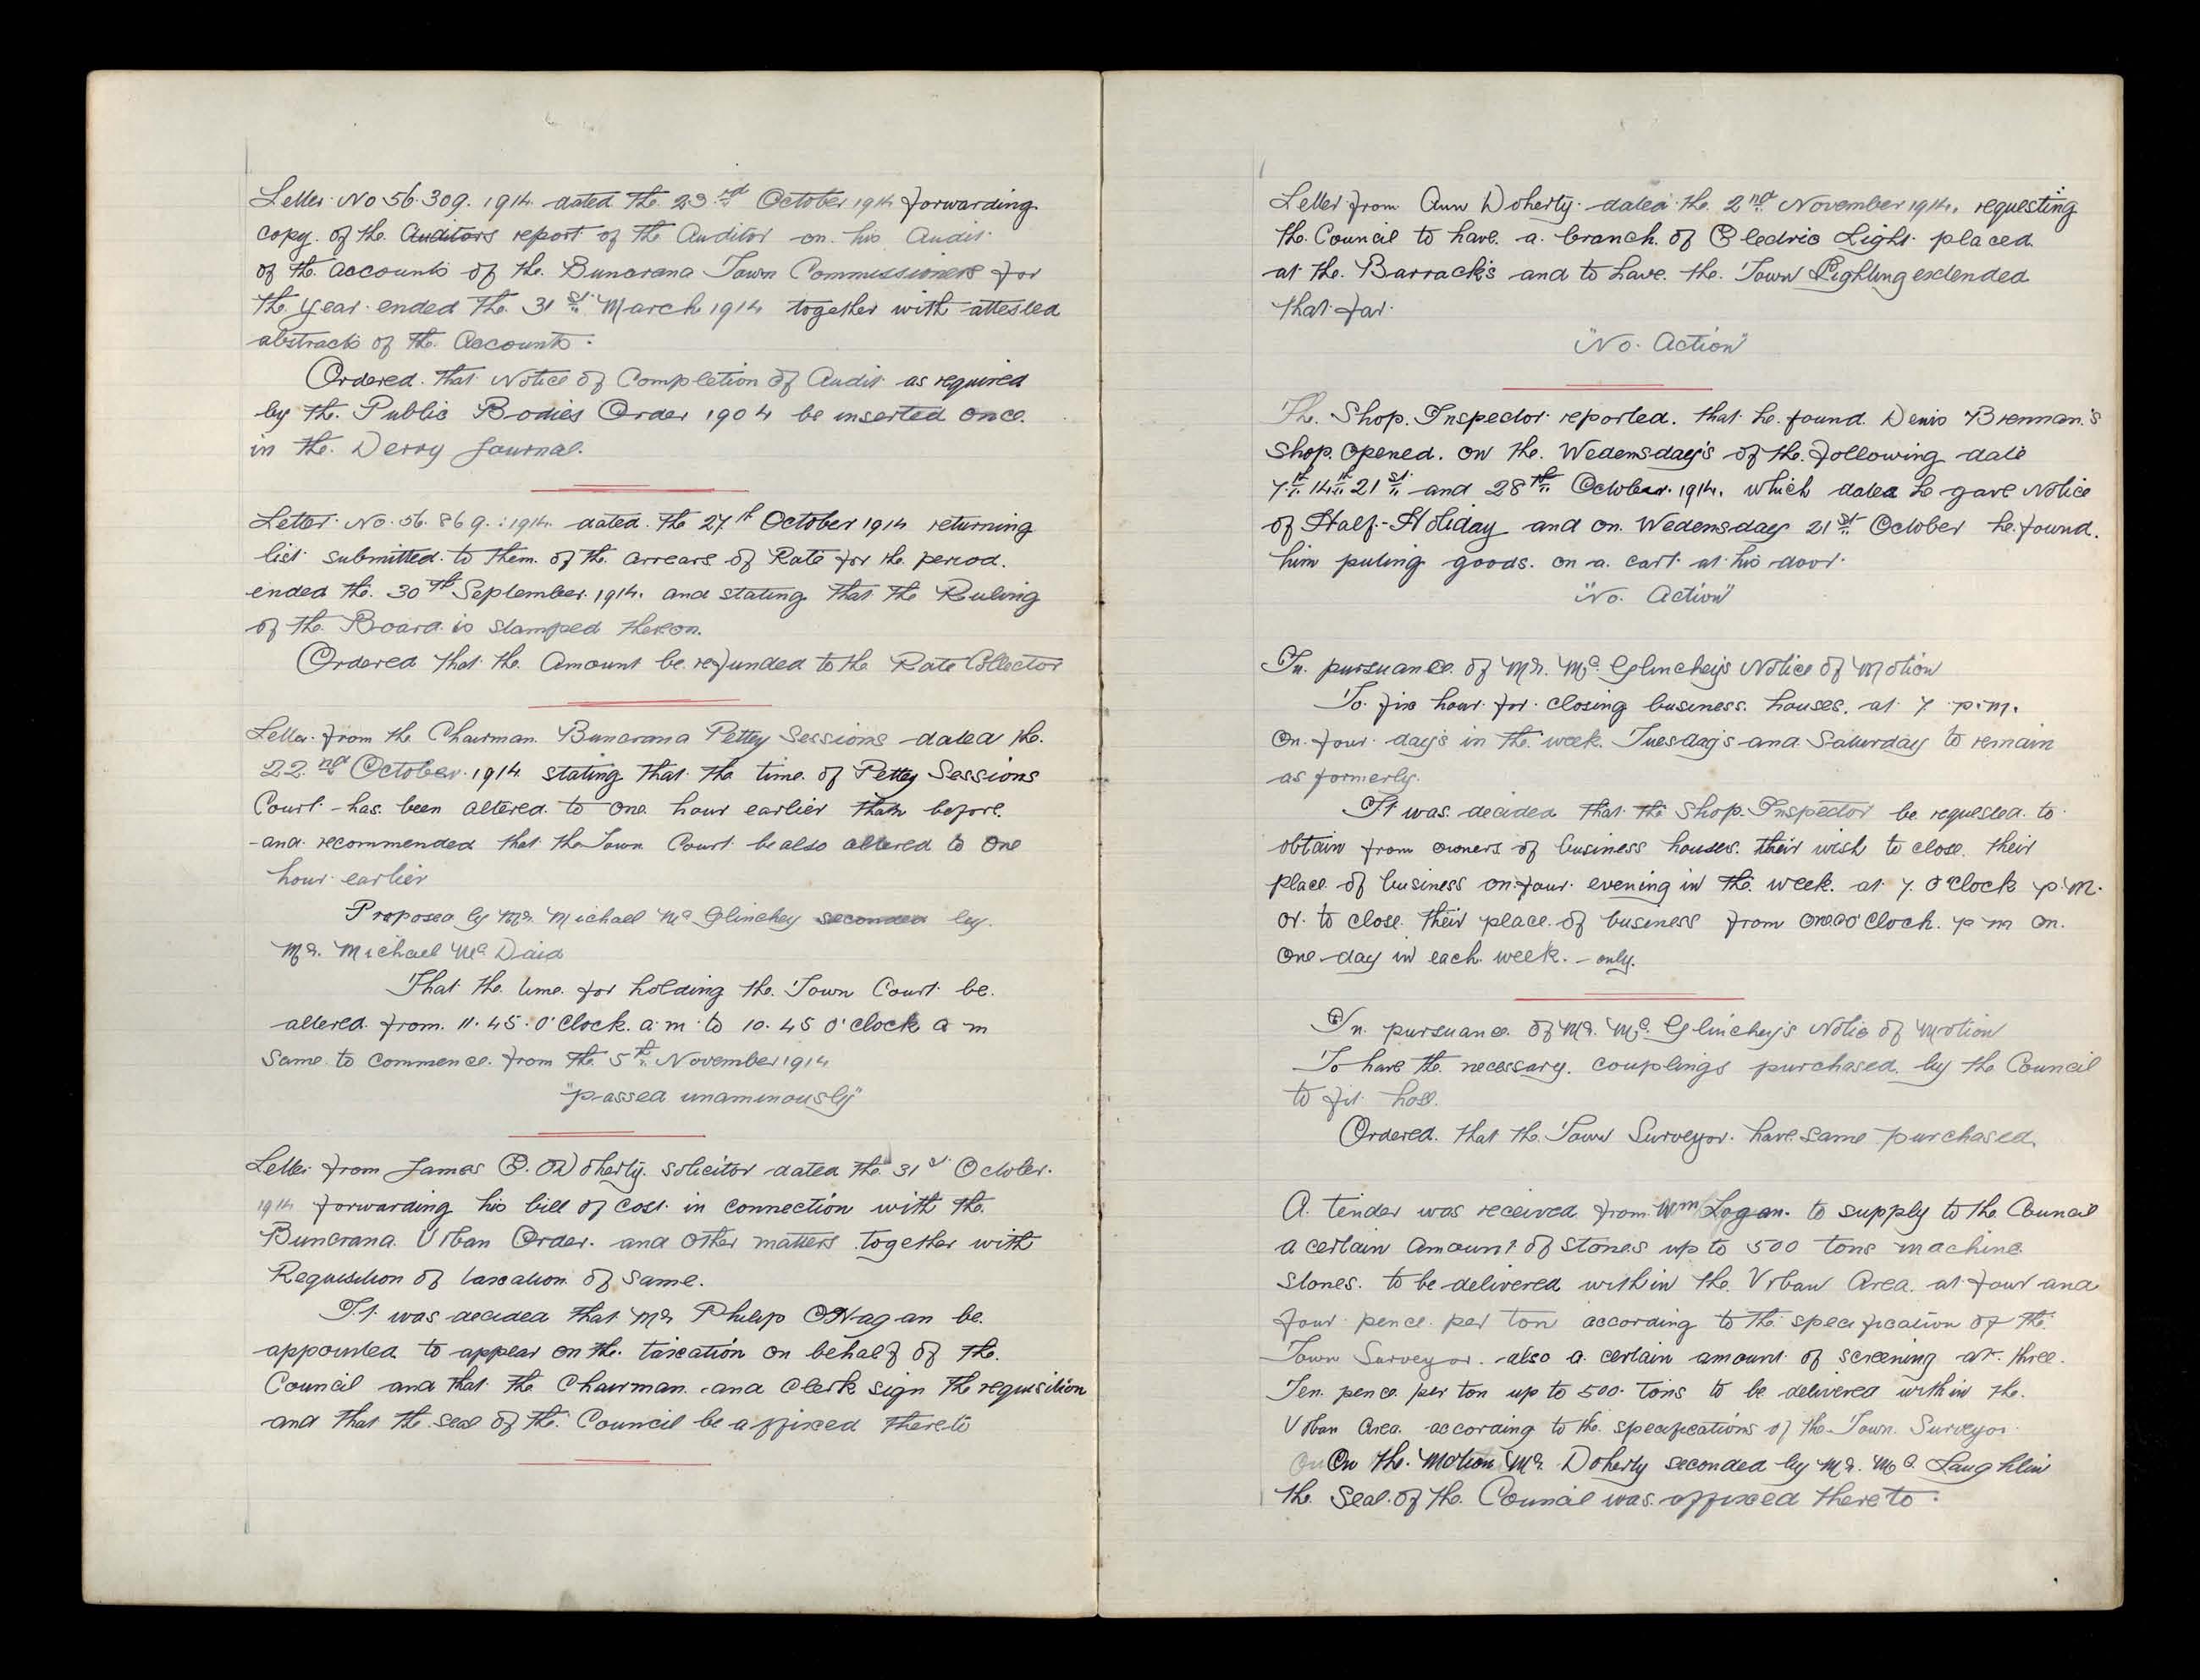 Letter No 56.309. 1914 dated the 23rd October 1914 forwarding
copy of the Auditors report of the Auditor on his Audit
of the accounts of the Buncrana Town Commissioners for
the year ended the 31st March 1914 together with attested
abstracts of the Accounts.
Ordered that Notice of Completion of Audit as required
by the Public Bodies Order 1904 be inserted once
in the Derry Journal.
Letter No. 56.869.:1914 dated the 27th October 1914 returning
list submitted to them of the arrears of Rate for the period
ended the 30th September 1914. and stating that the Ruling
of the Board is stamped thereon.
Ordered that the Amount be refunded to the Rate Collector
Letter from the Chairman Buncrana Pettey Sessions dated the
22nd October 1914 stating that the time of Pettey Sessions
Court has been altered to one hour earlier than before
and recommended that the Town Court be also altered to one
hour earlier
Proposed by Mr. Michael Mc Glinchey seconded by
Mr. Michael Mc Daid
That the time for holding the Town Court be
altered from 11.45. O'Clock a.m to 10.45 O'clock a m
Same to commence from the 5th November 1914
"passed unaminously"
Letter from James E. O'Doherty Solicitor dated the 31st October
1914 forwarding his bill of cost in connection with the
Buncrana Urban Order and other matters together with
Requisition of taxation of same.
It was decided that Mr Philip O'Hagan be
appointed to appear on the taxation on behalf of the
Council and that the Chairman and Clerk sign the requisition
and that the seal of the Council be affixed thereto
Letter from Ann Doherty dated the 2nd November 1914, requesting
the Council to have a branch of Electric Light placed
at the Barrack's and to have the Town Lighting extended
that far.
"No Action"
The Shop Inspector reported that he found Denis Brennan's
Shop opened on the Wedensday's of the following date
7th 14th 21st and 28th October 1914, which dates he gave Notice
of Half-Holiday and on Wedensday 21st October he found
him puting goods on a cart at his door.
"No Action"
In pursuance of Mr. Mc Glinchey's Notice of Motion
To fix hour for closing business houses at 7 p.m.
on four day's in the week. Tuesday's and Saturday to remain
as formerly.
It was decided that the Shop Inspector be requested to
obtain from owners of business houses their wish to close their
place of business on four evening in the week at 7 o'Clock p.m.
or to close their place of business from one o'Clock p m on
one day in each week - only.
In pursuance of Mr. Mc Glinchey's Notic of Motion
To have the necessary couplings purchased by the Council
to fit hose.
Ordered that the Town Surveyor have same purchased.
A Tender was received from Wm Logan to supply to the Council
a certain Amount of stones up to 500 tons machine
stones to be delivered within the Urban Area at four and
four pence per ton according to the specification of the
Town Surveyor also a certain amount of screening at three
Ten pence per ton up to 500 Tons to be delivered within the
Urban Area according to the specifications of the Town Surveyor
On On the Motion Mr. Doherty seconded by Mr. Mc Laughlin
the Seal of the Council was affixed thereto.